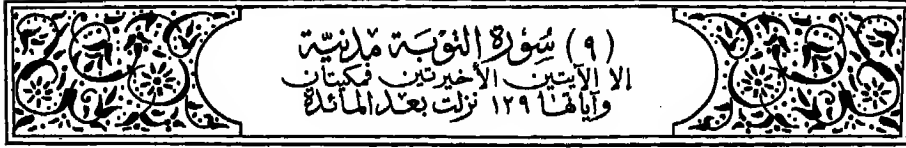 (٩) سُورَة التوبَة مَدنيّة
إلا الآيتين الأخيرتين فمكيتان
وآياتها ١٢٩ نزلت بعد المائدة